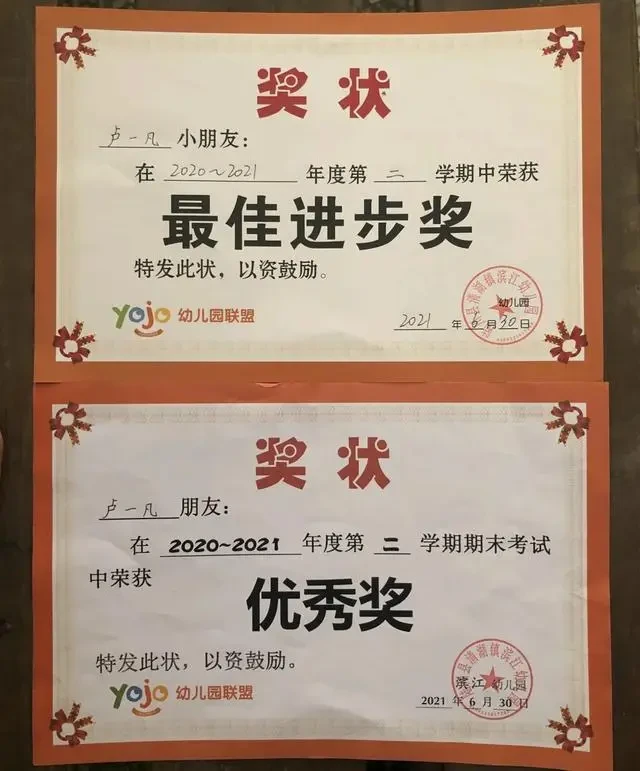 奖状
卢一凡 小朋友：
在 2020~2021 年度第 二 学期中荣获
最佳进步奖
特发此状，以资鼓励。
yojo 幼儿园联盟
幼儿园
2021 年 6 月 30 日
奖状
卢一凡 朋友：
在 2020~2021 年度第 二 学期期末考试
中荣获
优秀奖
特发此状，以资鼓励。
yojo 幼儿园联盟
滨江 幼儿园
2021 年 6 月 30 日
县清湖镇滨江幼儿园